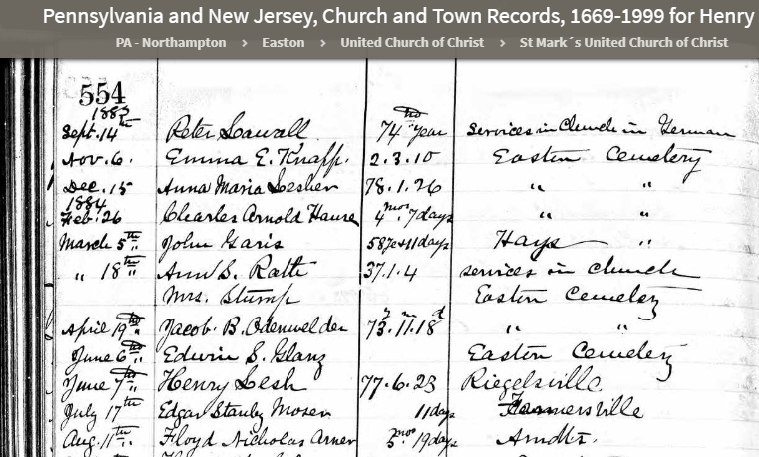 Pennsylvania and New Jersey, Church and Town Records, 1669-1999 for Henry
PA - Northampton > Easton > United Church of Christ > St Mark´s United Church of Christ
554
1883
Sept. 14th Peter 74th Year services in Church in German
Nov. 6. Emma E. Knapp. 2.3.10 Easton Cemetery
Dec. 15 Anna Maria Lesher 78.1.26 " "
1884
Feb. 26 Charles Arnold 4 mos. 7 days " "
March 5th " John Garis 58 ye 11 days Hays "
" 18th " Ann S. 37.1.4 services in church
Mrs. Stump Easton Cemetery
April 19th " Jacob. B. Odenwelder 73.11.18 " "
June 6th " Edwin S. Glanz Easton Cemetery
June 7th " Henry Lesh 77.6.23 Riegelsville.
July 17th Edgar Stanley Moser 11 days Farmersville
Aug. 11th " Floyd Nicholas Arner 5 mos 19 days Arndts.